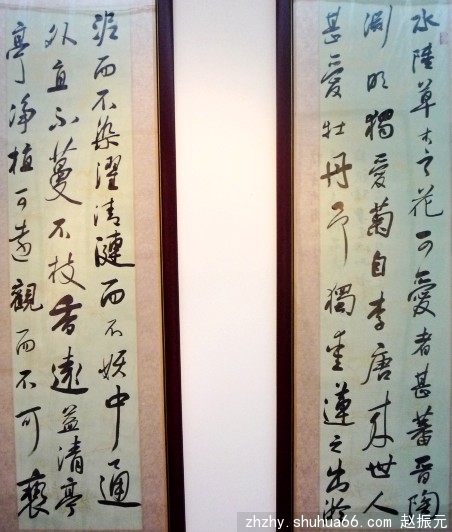 水陸草木之花可愛者甚蕃晋陶
渊明獨愛菊自李唐来世人
甚愛牡丹予獨爱蓮之出淤
泥而不染濯清漣而不妖中通
外直不蔓不枝香遠益清亭
亭净植可遠觀而不可褻
zhzhy.shuhua66.com 赵振元